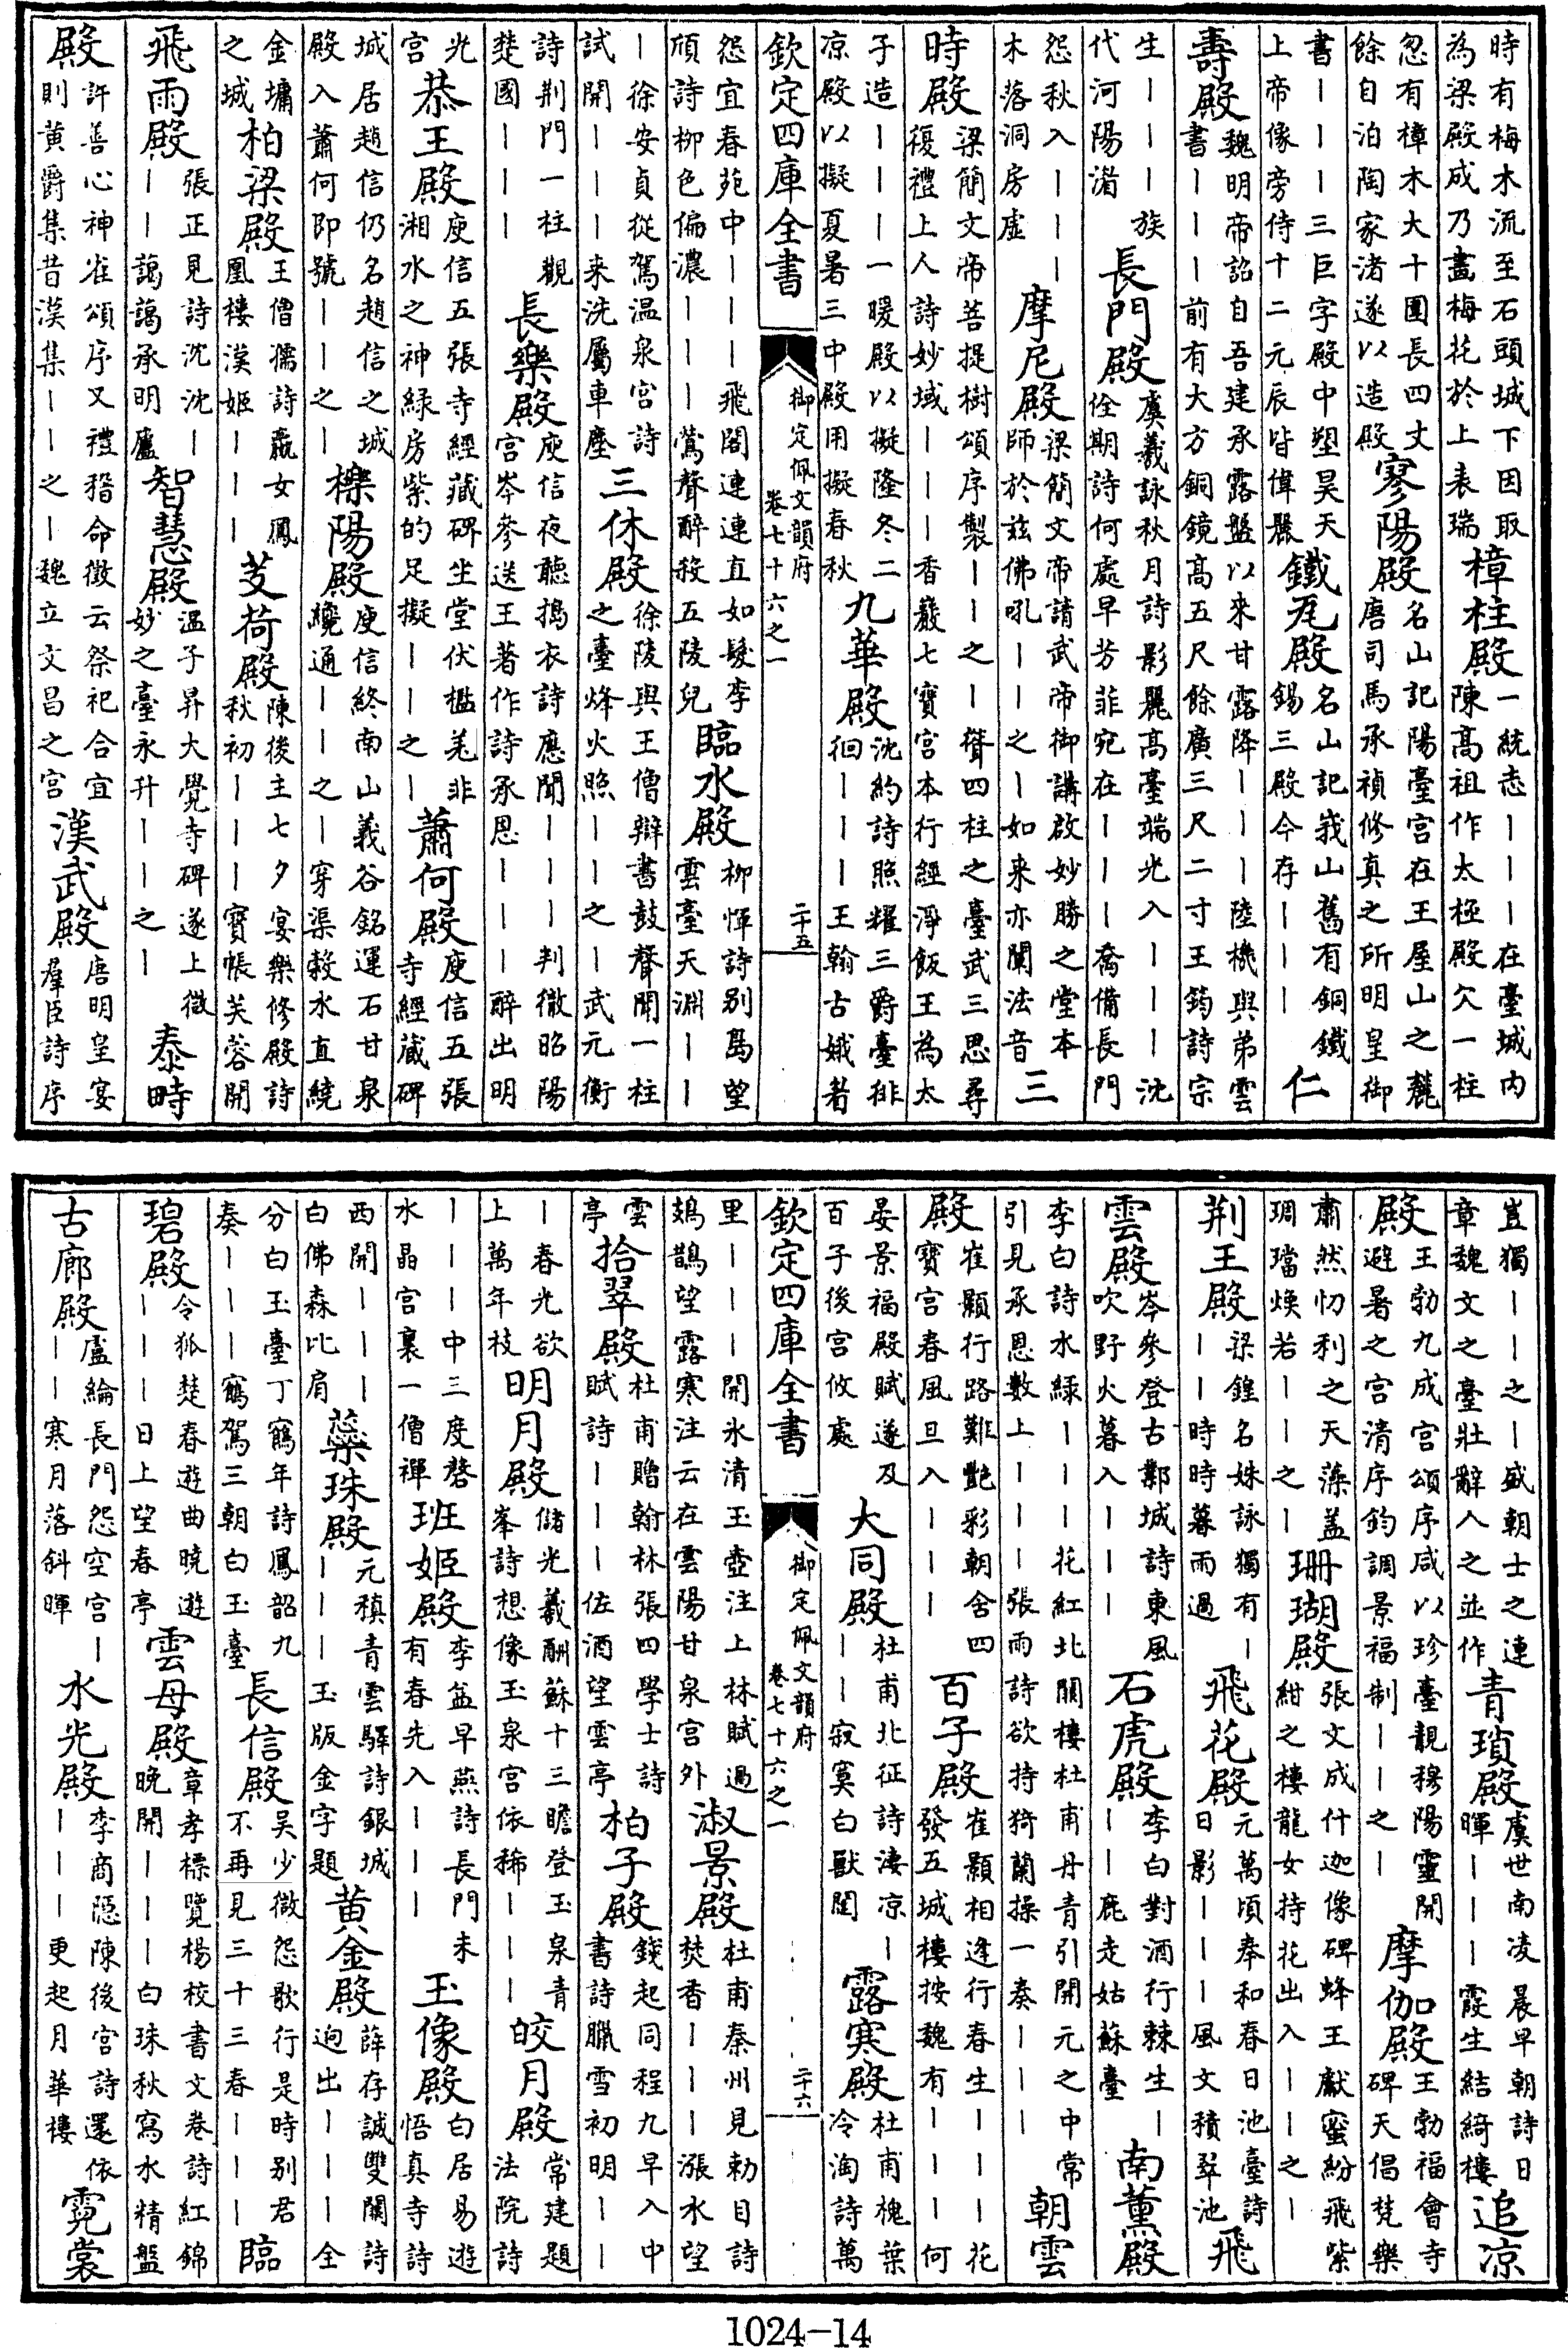 時有梅木流至石頭城下因取為梁殿成乃畫梅花於上表瑞 樟柱殿 一統志｜｜｜在臺城内陳髙祖作太極殿欠一柱
忽有樟木大十圍長四丈餘自泊陶家渚遂以造殿 寥陽殿 名山記陽臺宫在王屋山之麓唐司馬承禎修真之所明皇御
書｜｜｜三巨字殿中塑昊天上帝像旁侍十二元辰皆偉麗 鐵瓦殿 名山記峩山舊有銅鐵錫三殿今存｜｜｜ 仁
壽殿 魏明帝詔自吾建承露盤以來甘露降｜｜｜陸機與弟雲書｜｜｜前有大方銅鏡髙五尺餘廣三尺二寸王筠詩宗
生｜｜｜族代河陽渚 長門殿 虞羲詠秋月詩影麗髙臺端光入｜｜｜沈佺期詩何處早芳菲宛在｜｜｜喬備長門
怨秋入｜｜｜木落洞房虚 摩尼殿 梁簡文帝請武帝御講啟妙勝之堂本師於兹佛吼｜｜之｜如来亦闡法音 三
時殿 梁簡文帝菩提樹頌序製｜｜之｜聳四柱之臺武三思尋復禮上人詩妙域｜｜｜香巖七寶宫本行經淨飯王為太
子造｜｜｜一暖殿以擬隆冬二凉殿以擬夏暑三中殿用擬春秋 九華殿 沈約詩照耀三爵臺徘徊｜｜｜王翰古娥者
欽定四庫全書 御定佩文韻府 卷七十六之一 二十五
怨宜春苑中｜｜｜飛閣連連直如髮李頎詩柳色偏濃｜｜｜鶯聲醉殺五陵兒 臨水殿 柳惲詩别島望雲臺天淵｜｜
｜徐安貞從駕温泉宫詩試開｜｜｜来洗屬車塵 三休殿 徐陵與王僧辯書鼓聲聞一柱之臺烽火照｜｜之｜武元衡
詩荆門一柱觀楚國｜｜｜ 長樂殿 庾信夜聽搗衣詩應聞｜｜｜判徹昭陽宫岑參送王著作詩承恩｜｜｜醉出明
光宫 恭王殿 庾信五張寺經藏碑坐堂伏檻羌非湘水之神緑房紫的足擬｜｜之｜ 蕭何殿 庾信五張寺經蔵碑
城居趙信仍名趙信之城殿入蕭何即號｜｜之｜ 櫟陽殿 庾信終南山義谷銘運石甘泉纔通｜｜之｜穿渠穀水直繞
金墉之城 柏梁殿 王僧孺詩嬴女鳯凰樓漢姬｜｜｜ 芰荷殿 陳後主七夕宴樂修殿詩秋初｜｜｜寶帳芙蓉開
飛雨殿 張正見詩沈沈｜｜｜藹藹承明廬 智慧殿 温子昇大覺寺碑遂上微妙之臺永升｜｜之｜ 泰畤
殿 許善心神雀頌序又禮稽命徵云祭祀合宜則黄爵集昔漢集｜｜之｜魏立文昌之宫 漢武殿 唐明皇宴羣臣詩序
豈獨｜｜之｜盛朝士之連章魏文之臺壯辭人之並作 青瑣殿 虞世南凌晨早朝詩日暉｜｜｜霞生結綺樓 追凉
殿 王勃九成宫頌序咸以珍臺靚穆陽靈開避暑之宫清序鈞調景福制｜｜之｜ 摩伽殿 王勃福會寺碑天倡梵樂
肅然忉利之天藻盖琱璫煥若｜｜之｜ 珊瑚殿 張文成什迦像碑蜂王獻蜜紛飛紫紺之樓龍女持花出入｜｜之｜
荆王殿 梁鍠名姝詠獨有｜｜｜｜時時暮雨過 飛花殿 元萬頃奉和春日池臺詩日影｜｜｜風文積翠池 飛
雲殿 岑參登古鄴城詩東風吹野火暮入｜｜｜ 石虎殿 李白對酒行棘生｜｜｜鹿走姑蘇臺 南薰殿
李白詩水緑｜｜｜花紅北闕樓杜甫丹青引開元之中常引見承恩數上｜｜｜張雨詩欲持猗蘭操一奏｜｜｜ 朝雲
殿 崔顥行路難艶彩朝含四寶宫春風旦入｜｜｜ 百子殿 崔顥相逢行春生｜｜｜花發五城樓按魏有｜｜｜何
晏景福殿賦遂及百子後宫攸處 大同殿 杜甫北征詩淒凉｜｜｜寂寞白獸闥 露寒殿 杜甫槐葉冷淘詩萬
欽定四庫全書 御定佩文韻府 卷七十六之一 二十六
里｜｜｜開氷清玉壺注上林賦過鳷鵲望露寒注云在雲陽甘泉宫外 淑景殿 杜甫秦州見勅目詩焚香｜｜｜漲水望
雲亭 拾翠殿 杜甫贈翰林張四學士詩賦詩｜｜｜佐酒望雲亭 柏子殿 錢起同程九早入中書詩臘雪初明｜｜
｜春光欲上萬年枝 明月殿 儲光羲酬蘇十三瞻登玉泉青峯詩想像玉泉宫依稀｜｜｜ 皎月殿 常建題法院詩
｜｜｜中三度磬水晶宫裏一僧禪 班姬殿 李益早燕詩長門未有春先入｜｜｜ 玉像殿 白居易遊悟真寺詩
西開｜｜｜白佛森比肩 蘂珠殿 元稹青雲驛詩銀城｜｜｜玉版金字題 黄金殿 薛存誠雙闕詩逈出｜｜｜全
分白玉臺丁鶴年詩鳳韶九奏｜｜｜鶴駕三朝白玉臺 長信殿 吴少微怨歌行是時别君不再見三十三春｜｜｜ 臨
碧殿 令狐楚春遊曲曉遊｜｜｜日上望春亭 雲母殿 章孝標覽楊校書文卷詩紅錦晩開｜｜｜白珠秋寫水精盤
古廊殿 盧綸長門怨空宫｜｜｜寒月落斜暉 水光殿 李商隠陳後宫詩還依｜｜｜更起月華樓 霓裳
1024-14